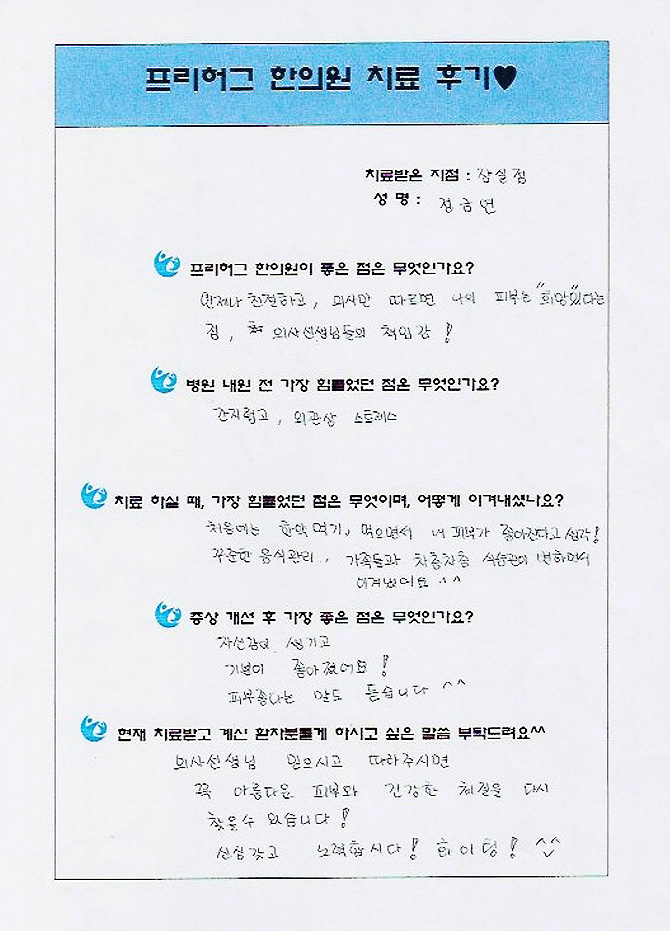 프리허그 한의원 치료 후기♥
치료받은 지점 : 잠실점
성 명 : 정금연
프리허그 한의원이 좋은 점은 무엇인가요?
언제나 친절하고, 의사만 따르면 나의 피부는 "희망"있다는
점, 의사선생님들의 책임감!
병원 내원 전 가장 힘들었던 점은 무엇인가요?
간지럽고, 외관상 스트레스
치료 하실 때, 가장 힘들었던 점은 무엇이며, 어떻게 이겨내셨나요?
처음에는 한약먹기, 먹으면서 내 피부가 좋아진다고 생각!
꾸준한 음식관리.. 가족들과 차츰차츰 식습관이 변하면서
이겨냈어요 ^^
증상 개선 후 가장 좋은 점은 무엇인가요?
자신감이 생기고
기분이 좋아졌어요!
피부좋다는 말도 듣습니다 ^^
현재 치료받고 계신 환자분들께 하시고 싶은 말씀 부탁드려요^^
의사선생님 믿으시고 따라주시면
꼭 아름다운 피부와 건강한 체질을 다시
찾을수 있습니다!
신심갖고 노력합시다! 화이팅! ^^